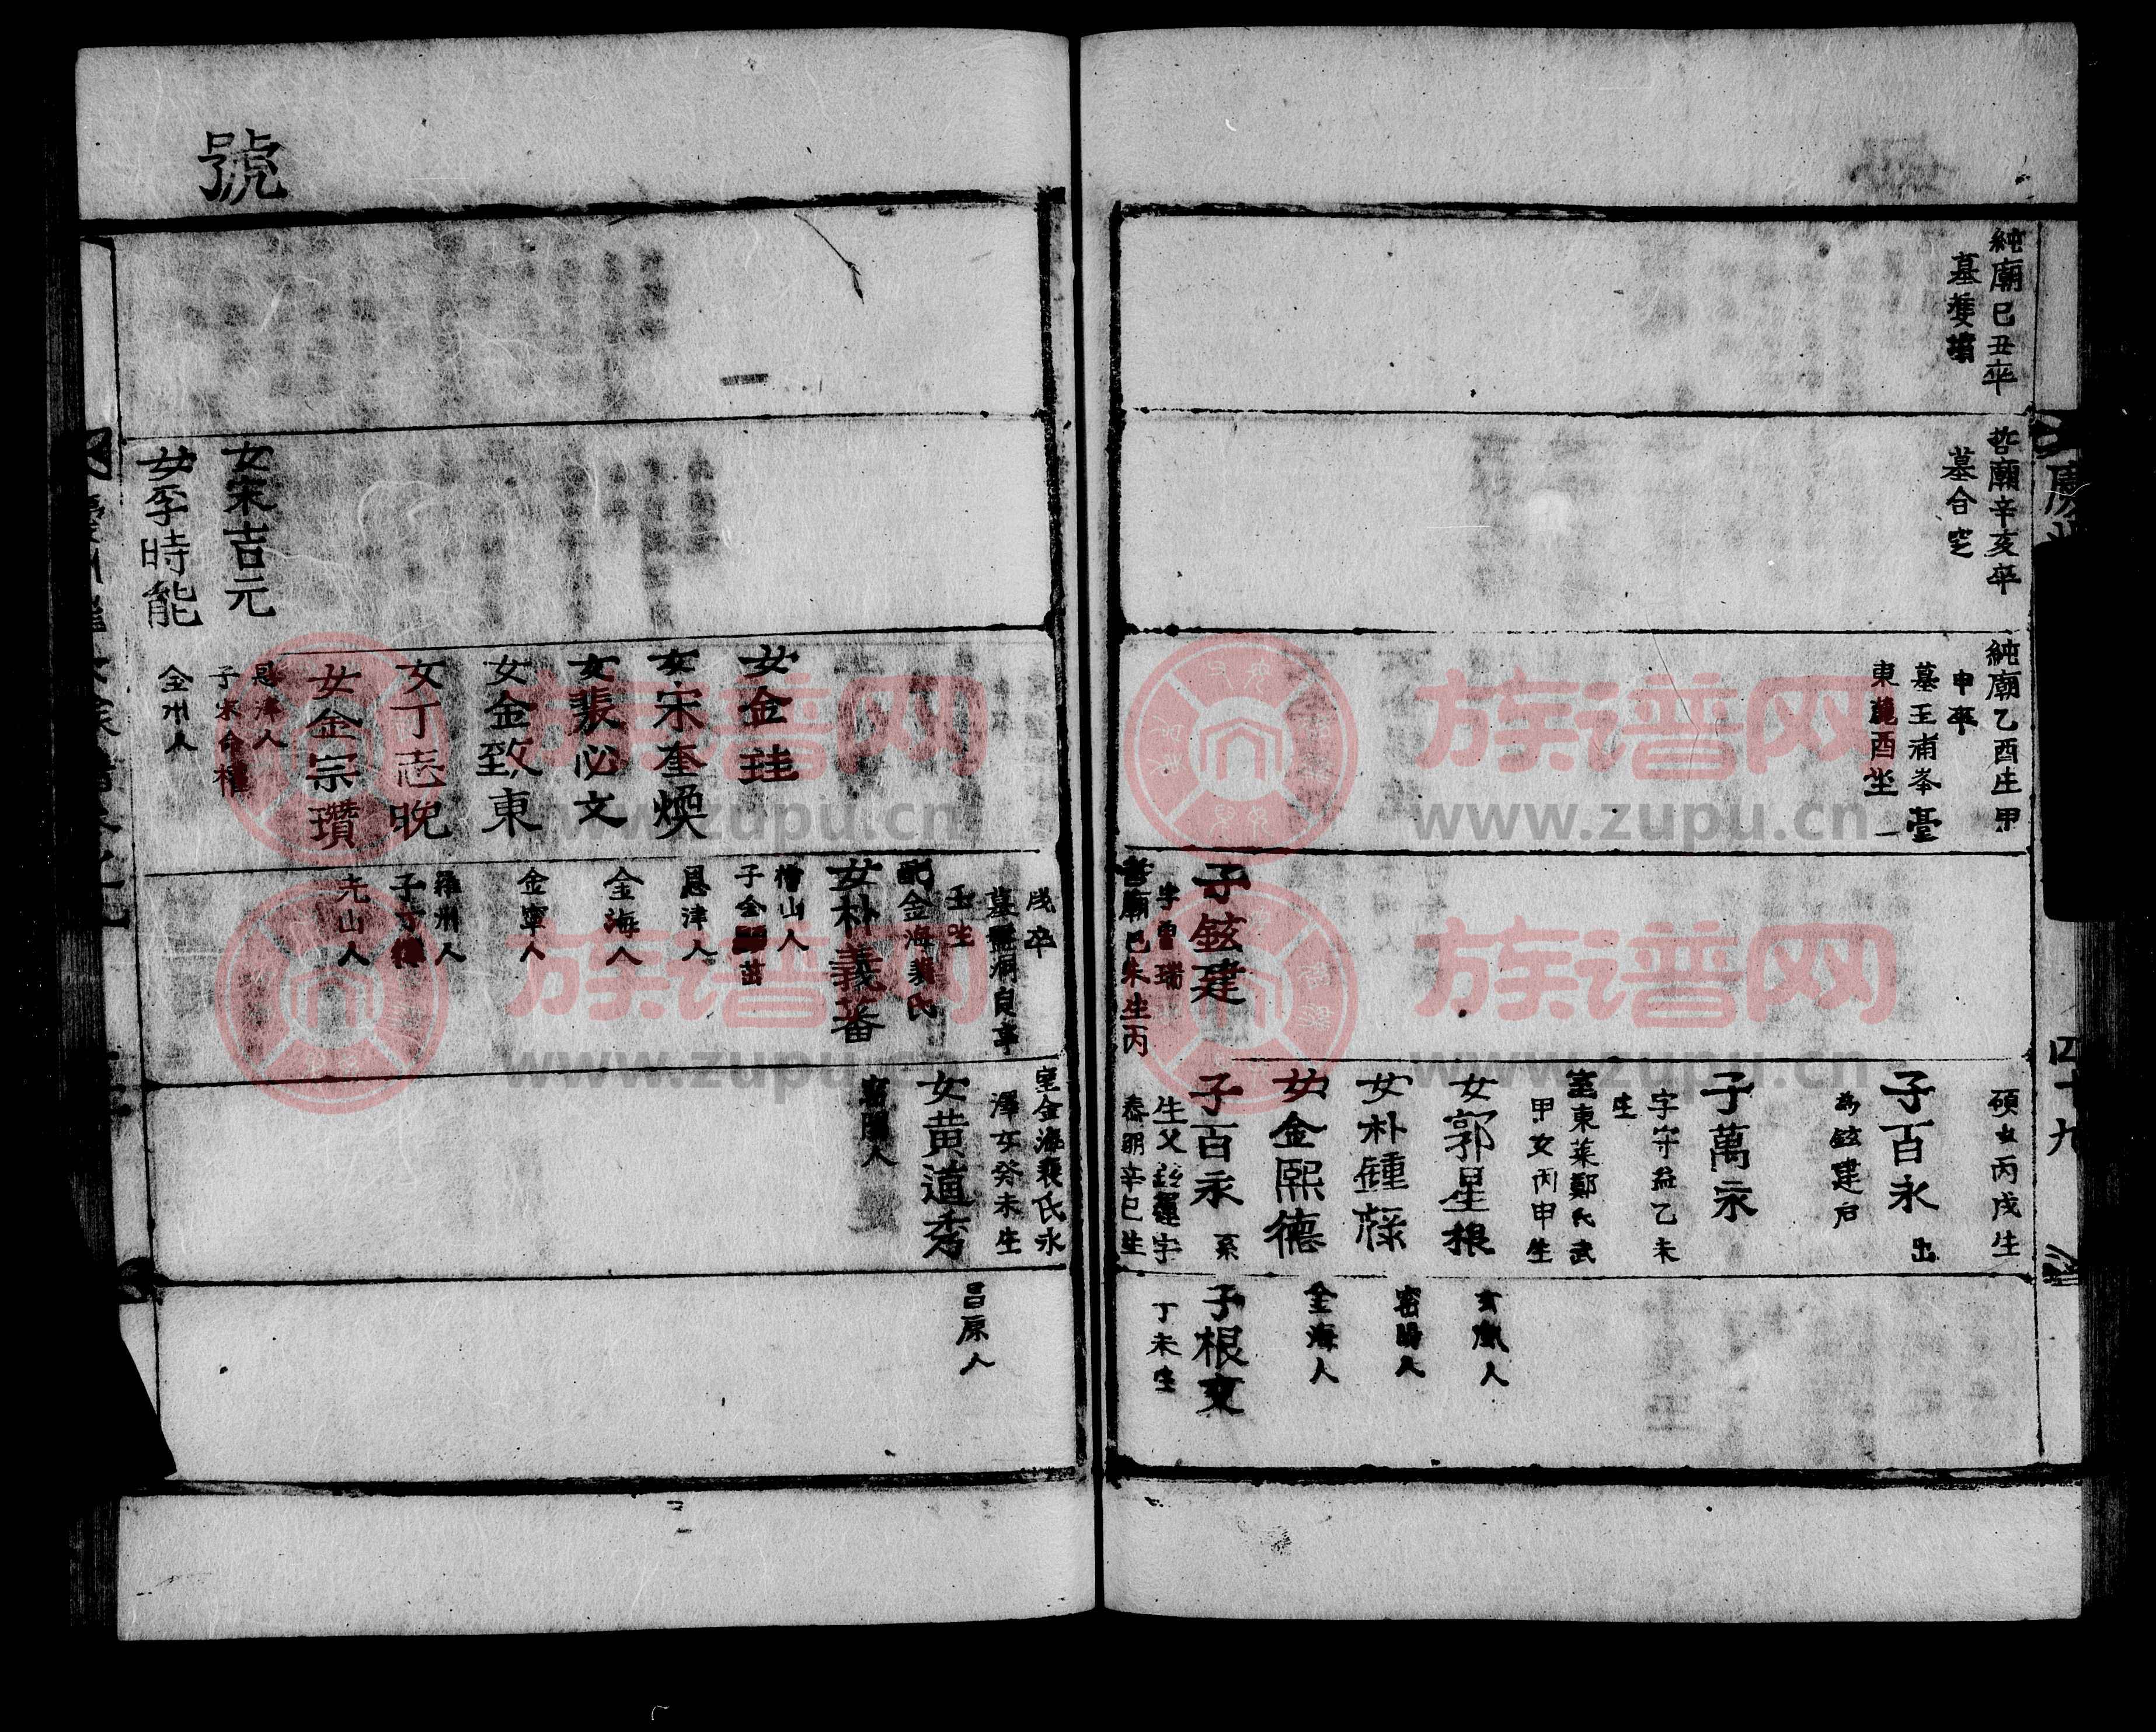 純廟己丑卒
墓雙墳
哲廟辛亥卒
墓合窆
純廟乙酉生甲
申卒
墓玉浦峯臺
東麓酉坐
子鉉建
字雲瑞
哲廟己未生丙
碩女丙戌生
子百永 出
為鉉建后
子萬永
字守益乙未
生
室東萊鄭氏武
甲女丙申生
女郭星根
女朴鍾祿
女金熙德
子百永 系
生父鉉運字
泰明辛巳生
玄風人
密陽人
金海人
子根文
丁未生
四十九
號
女宋吉元
女李時能
女金珪
女宋奎煥
女裴必文
女金致東
女丁志晚
女金宗瓚
恩津人
全州人
戌卒
壬坐
配金海裴氏
女朴義蕃
檜山人
恩津人
金海人
金寧人
羅州人
光山人
室金海裴氏永
澤女癸未生
女黄道秀
密陽人
昌原人
族谱网
www.zupu.cn
族谱网
www.zupu.cn
族谱网
www.zupu.cn
族谱网
www.zupu.cn